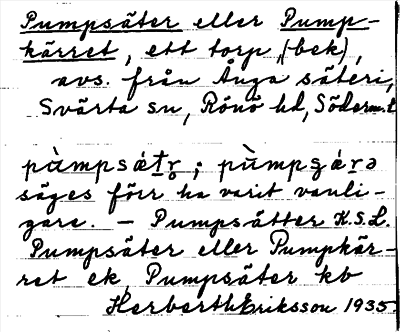 Pumpsäter eller Pump-
kärret, ett torp, (bek),
avs. från Ånga säteri,
Svärta sn, Rönö hd, Söderm.l
pùmpsǽtr̥; pùmpɟæ̀rə
säges förr ha varit vanli-
gare. – Pumpsätter H.S.L.
Pumpsäter eller Pumpkär-
ret ek, Pumpsäter kb
Herberth Eriksson 1935.